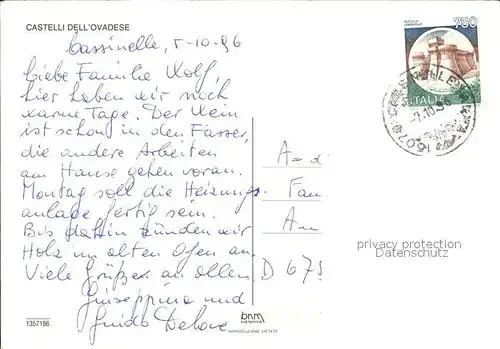 CASTELLI DELL'OVADESE
Cassinelle, 5-10-96
Liebe Familie Wolf,
hier haben wir noch
warme Tage. Der Wein
ist schon in den Fässer,
die andere Arbeiten
am Hause gehen voran.
Montag soll die Heizungs
anlage fertig sein.
Bis dahin zünden wir
Holz im alten Ofen an.
Viele Grüße an allen
Giuseppina und
Guido
1357186
750
ITALIA
A-d
Fam
Am
D 675
privacy protection
Datenschutz
bnm
GENOVA
RIPRODUZIONE VIETATA